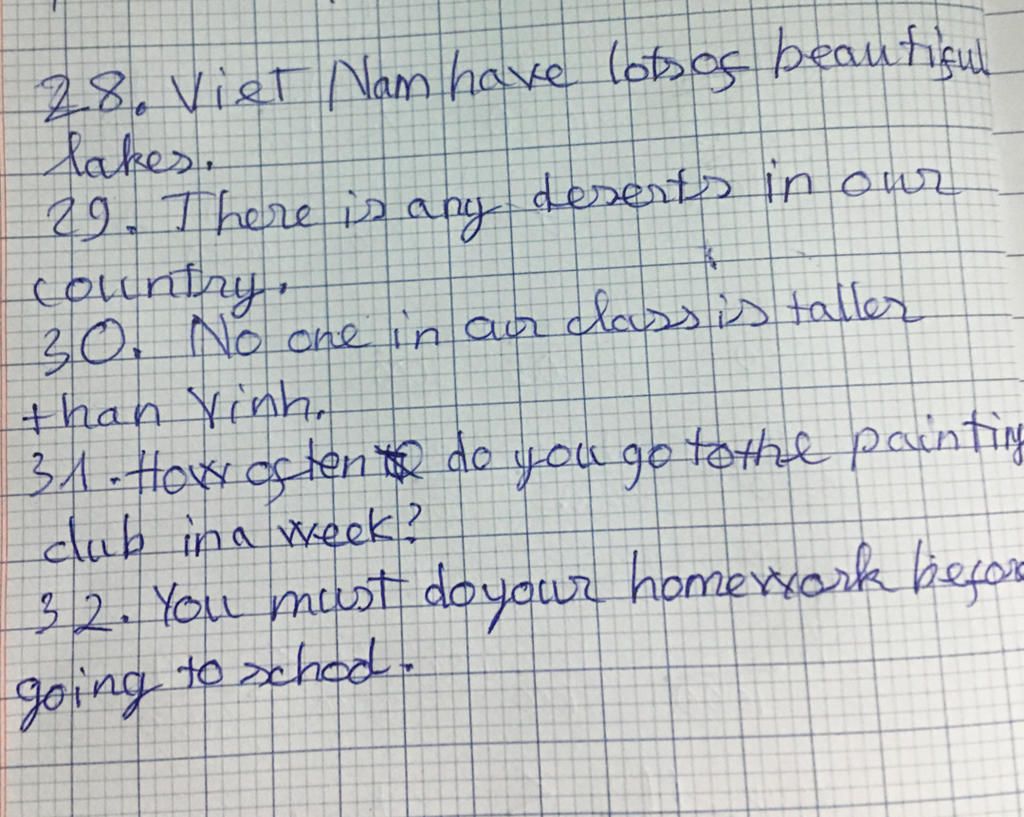 28. Viet Nam have lots of beautiful
lakes.
29. There is any deserts in our
country.
30. No one in our class is taller
than Vinh.
31. How often do you go to the painting
club in a week?
32. You must do your homework before
going to school.